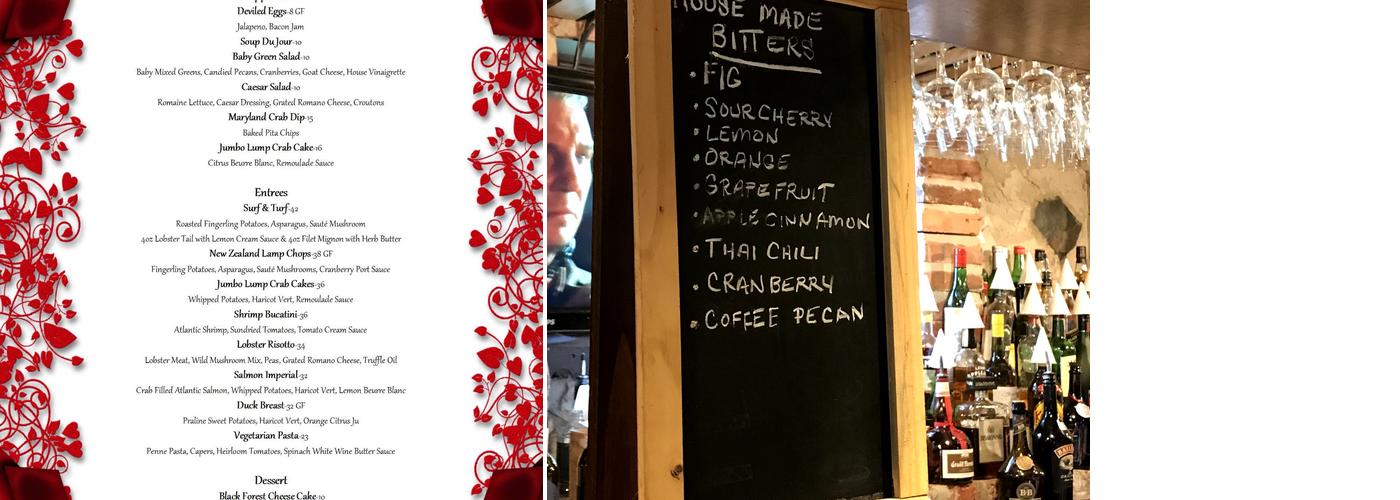 Deviled Eggs-8 GF
Jalapeno, Bacon Jam
Soup Du Jour-10
Baby Green Salad-10
Baby Mixed Greens, Candied Pecans, Cranberries, Goat Cheese, House Vinaigrette
Caesar Salad-10
Romaine Lettuce, Caesar Dressing, Grated Romano Cheese, Croutons
Maryland Crab Dip-15
Baked Pita Chips
Jumbo Lump Crab Cake-16
Citrus Beurre Blanc, Remoulade Sauce
Entrees
Surf & Turf-42
Roasted Fingerling Potatoes, Asparagus, Sauté Mushroom
4oz Lobster Tail with Lemon Cream Sauce & 4oz Filet Mignon with Herb Butter
New Zealand Lamp Chops-38 GF
Fingerling Potatoes, Asparagus, Sauté Mushrooms, Cranberry Port Sauce
Jumbo Lump Crab Cakes-36
Whipped Potatoes, Haricot Vert, Remoulade Sauce
Shrimp Bucatini-36
Atlantic Shrimp, Sundried Tomatoes, Tomato Cream Sauce
Lobster Risotto-34
Lobster Meat, Wild Mushroom Mix, Peas, Grated Romano Cheese, Truffle Oil
Salmon Imperial-32
Crab Filled Atlantic Salmon, Whipped Potatoes, Haricot Vert, Lemon Beurre Blanc
Duck Breast-32 GF
Praline Sweet Potatoes, Haricot Vert, Orange Citrus Ju
Vegetarian Pasta-23
Penne Pasta, Capers, Heirloom Tomatoes, Spinach White Wine Butter Sauce
Dessert
Black Forest Cheese Cake-10
HOUSE MADE
BITTERS
• FIG
• SOUR CHERRY
• LEMON
• ORANGE
• GRAPEFRUIT
• APPLE CINNAMON
• THAI CHILI
• CRANBERRY
• COFFEE PECAN
B&B